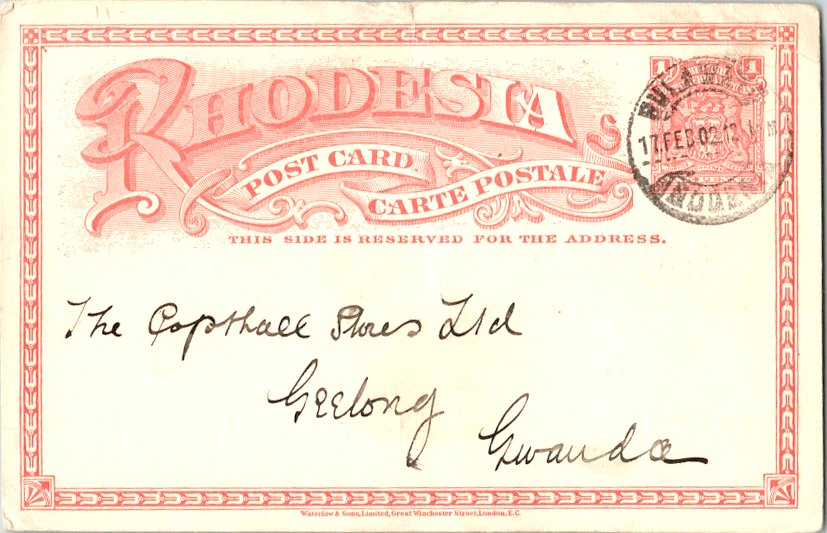 RHODESIA
POST CARD.
CARTE POSTALE
THIS SIDE IS RESERVED FOR THE ADDRESS.
1 1
17.FEB 02.12
The Copthall Stores Ltd
Geelong
Gwanda
Waterlow & Sons, Limited, Great Winchester Street, London, E.C.